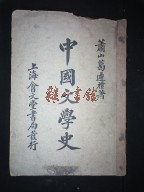 蕭山葛遵禮編
中國文學史
上海會文堂書局發行